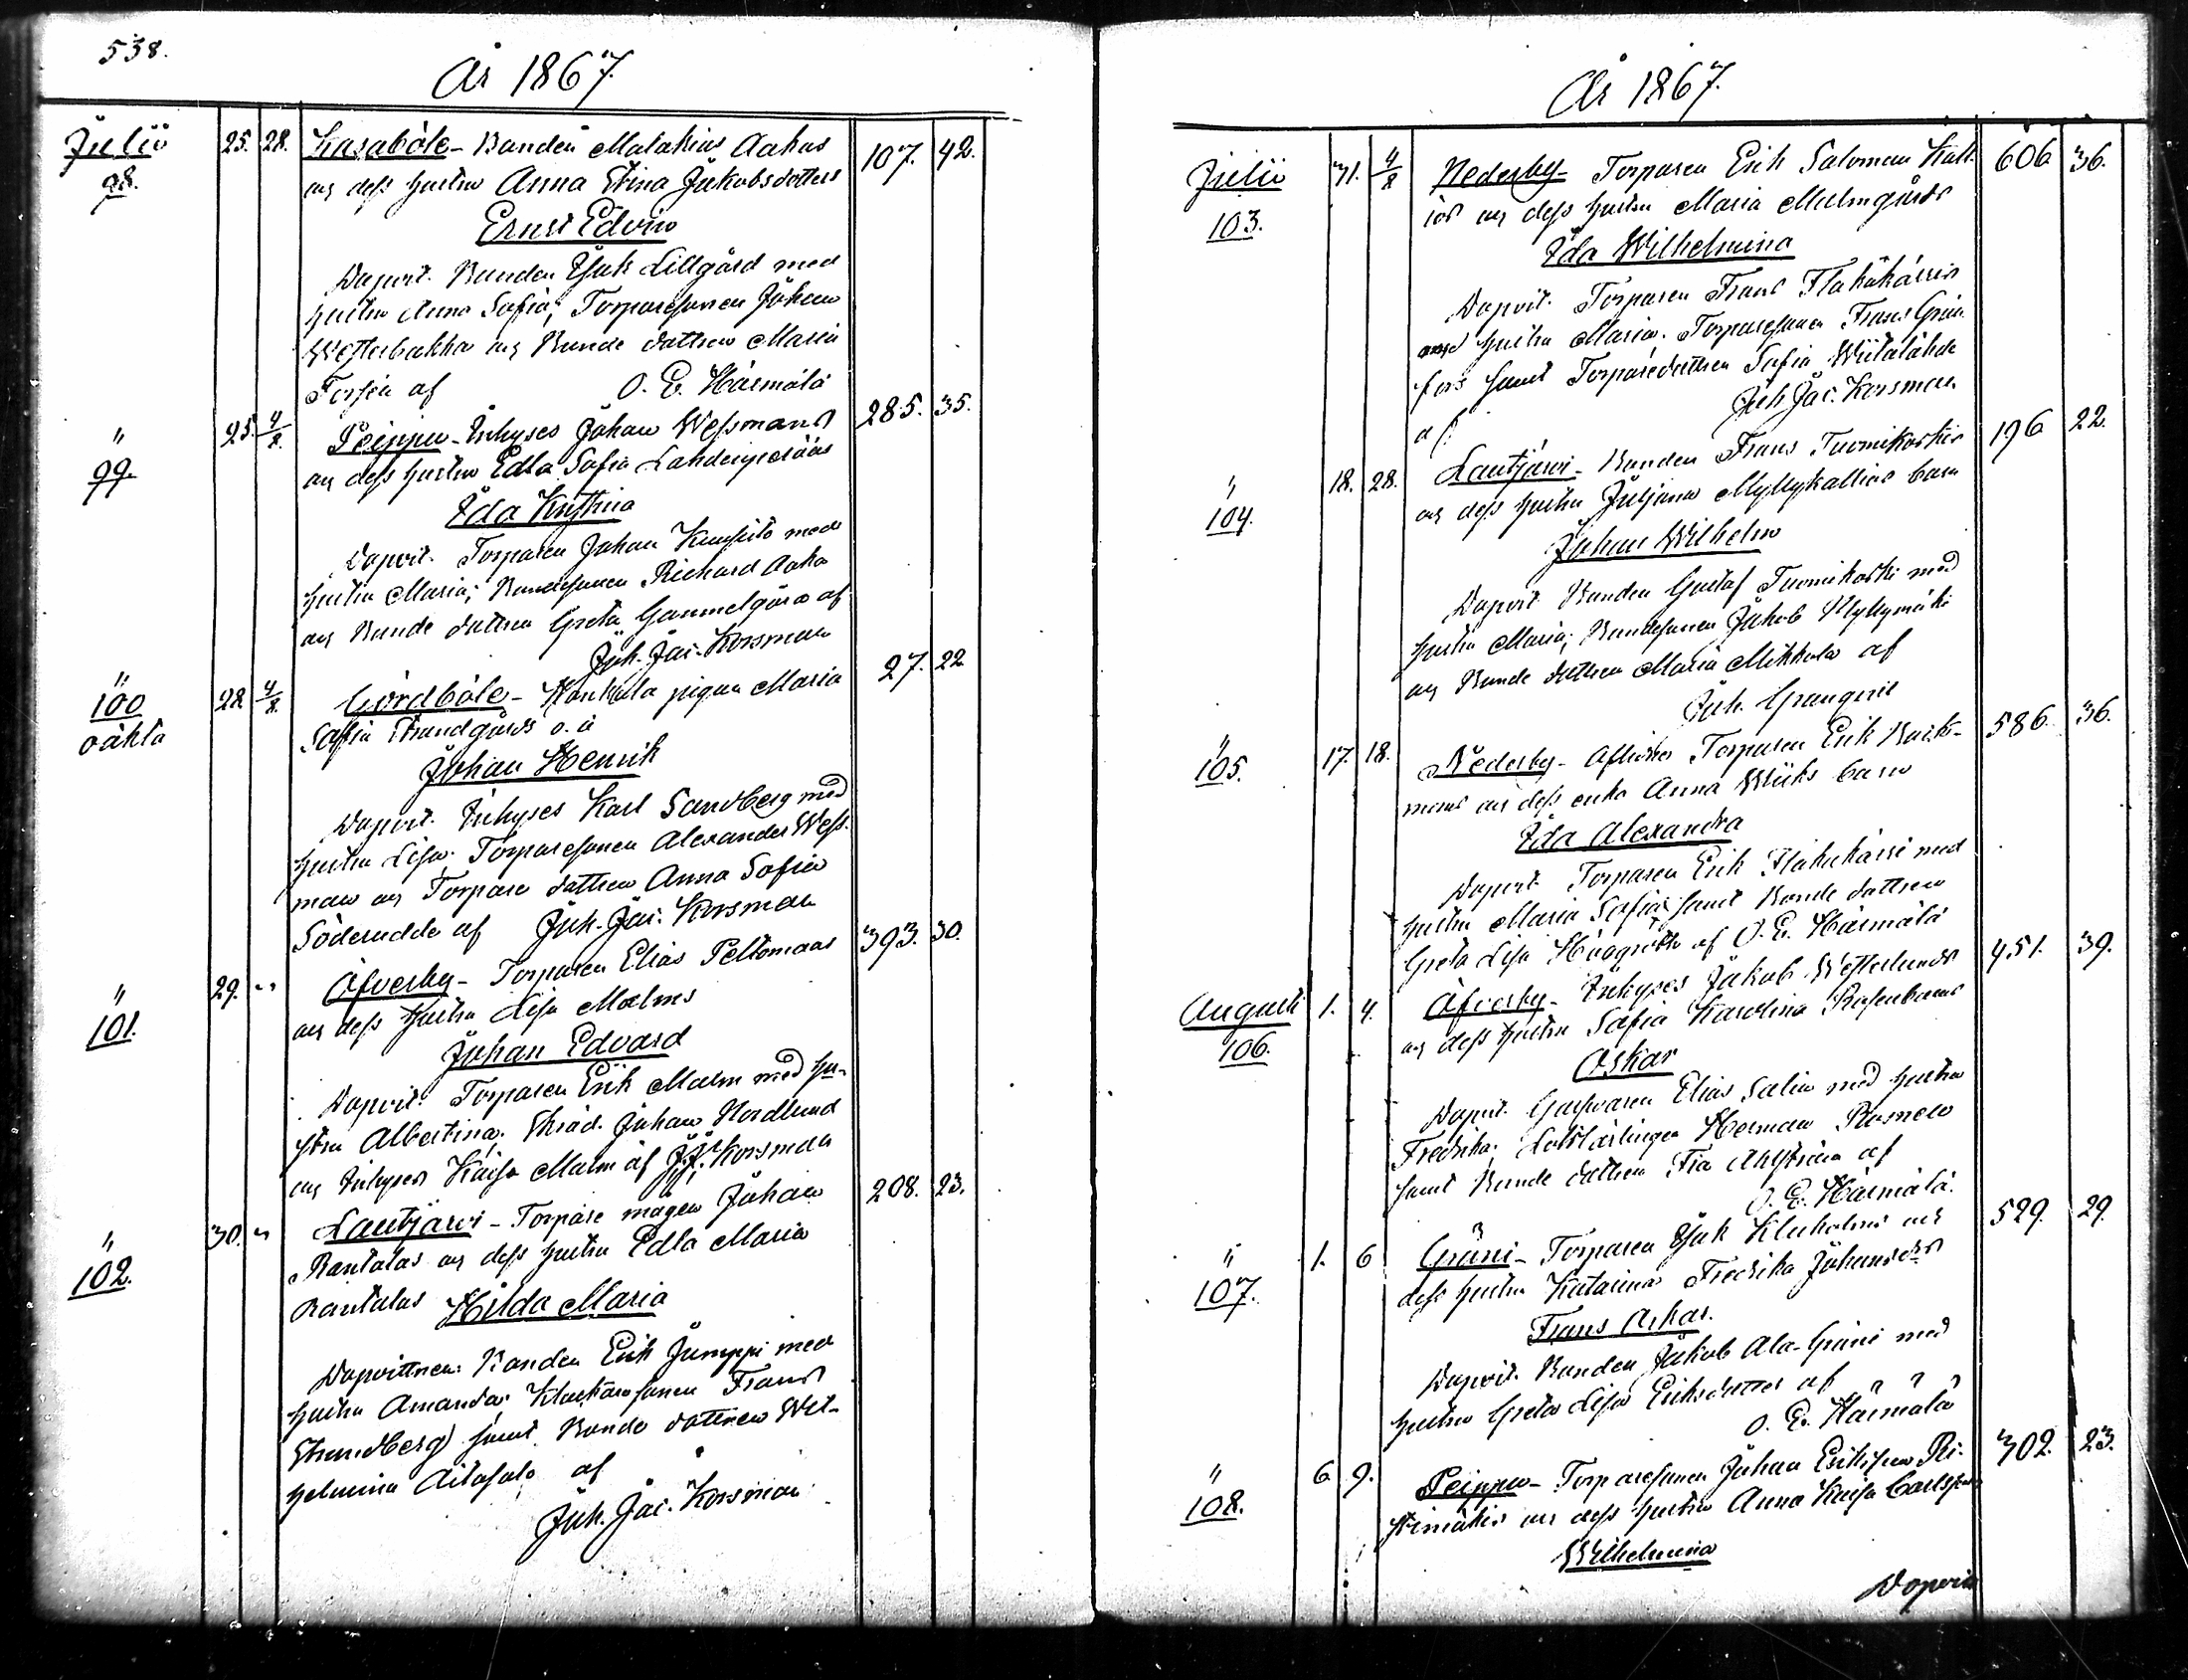 538.
År 1867
Julii 25. 28. Kasaböle - Bonden Malakias Aakus 107. 42.
98. och dess hustru Anna Stina Jakobsdotters
Ernst Edvin
Dopvit. Bonden Isak Lillgård med
hustru Anna Sofia; Torparesonen Johan
Westerbakka och Bonde dottren Maria
af O. E. Härmälä
" 25. 4/8. Peippu - Inhyses Johan Wessmans 285. 35.
99. och dess hustru Edla Sofia Lahdenperääs
Ida Kristina
Dopvit. Torparen Johan med
hustru Maria; Bondesonen Richard Aaka
och Bonde dottren Greta Gammelgård af
Joh. Jac. Korsman
" 28 4/8. Norrdböle - pigan Maria 27. 22
100 Sofia Strandgårds o. ä
oäkta Johan Henrik
Dopvit. Inhyses Karl Sandberg med
hustru Lisa; Torparesonen Alexander Wess-
man och Torpare dottren Anna Sofia
Söderudde af Joh. Jac. Korsman
" 29. " Öfverby - Torparen Elias Peltomaas 393. 30.
101. och dess hustru Lisa Malms
Johan Edvard
Dopvit. Torparen Erik Malm med hu-
stru Albertina; Skräd. Johan Nordlund
och Inhyses Kaisa Malm af J. J. Korsman
" 30. " Lautjärvi - Torpare mågen Johan 208. 23.
102. Rantalas och dess hustru Edla Maria
Rantalas Hilda Maria
Dopvittnen: Bonden Erik Jumppi med
hustru Amanda; Klockaresonen Frans
Strandberg samt Bonde dottren Wil-
helmina Aitasalo af
Joh. Jac. Korsman
År 1867.
Julii 31. 4/8 Nederby - Torparen Erik Salomon Kall- 606 36.
103. iös och dess hustru Maria Malmgårds
Ida Wilhelmina
Dopvit. Torparen Frans Flakäkärrin
med hustru Maria; Torparesonen Frans Grän-
fors samt Torparedottren Sofia Wiitalähde
af Joh. Jac. Korsman
" 18. 28. Lautjärvi - Bonden Frans Tuomikoskis 196 22.
104. och dess hustru Juljana Myllykallios barn
Johan Wilhelm
Dopvit. Bonden Gustaf Tuomikoski med
hustru Maria; Bondesonen Jakob Myllymäki
och Bonde dottren Maria Mikkola af
Joh. Granqvist
" 17. 18. Nederby - Aflidne Torparen Erik Back- 586. 36.
105. mans och dess enka Anna Wiiks barn
Ida Alexandra
Dopvit. Torparen Erik Flakukärri med
hustru Maria Sofia samt Bonde dottren
Greta Lisa af O. E. Härmälä
Augusti 1. 4. Öfverby - Inhyses Jakob Westerlunds 451. 39.
106. och dess hustru Sofia Karolina Rosenbacks
Oskar
Dopvit. Garfvaren Elias Salin med hustru
Fredrika; Lotslärlingen Herman Rosnell
samt Bonde dottren Fia Ahlström af
O. E. Härmälä.
" 1. 6 Gräni - Torparen Isak Klukolms och 529. 29.
107. dess hustru Katarina Fredrika Johansdrs
Frans Oskar.
Dopvit. Bonden Jakob Ala-Gräni med
hustru Greta Lisa Eriksdotter af
O. E. Härmälä
" 6 9. Peippu - Torparesonen Johan Eriksson Ri- 302. 23.
108. stimäkis och dess hustru Anna Kaisa Carls
Wilhelmina
Dopvit